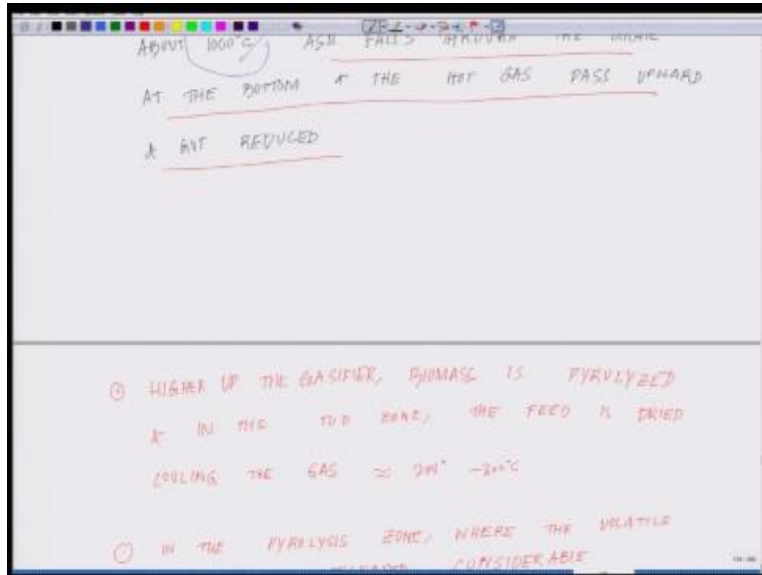 ABOUT 1000°C, ASH FALLS THROUGH THE
AT THE BOTTOM & THE HOT GAS PASS UPWARD
& GOT REDUCED
HIGHER UP THE GASIFIER, BIOMASS IS PYROLYZED
& IN THE TOP ZONE, THE FEED IS DRIED
COOLING THE GAS ≈ 200° -300°C
IN THE PYROLYSIS ZONE, WHERE THE VOLATILE
CONSIDERABLE